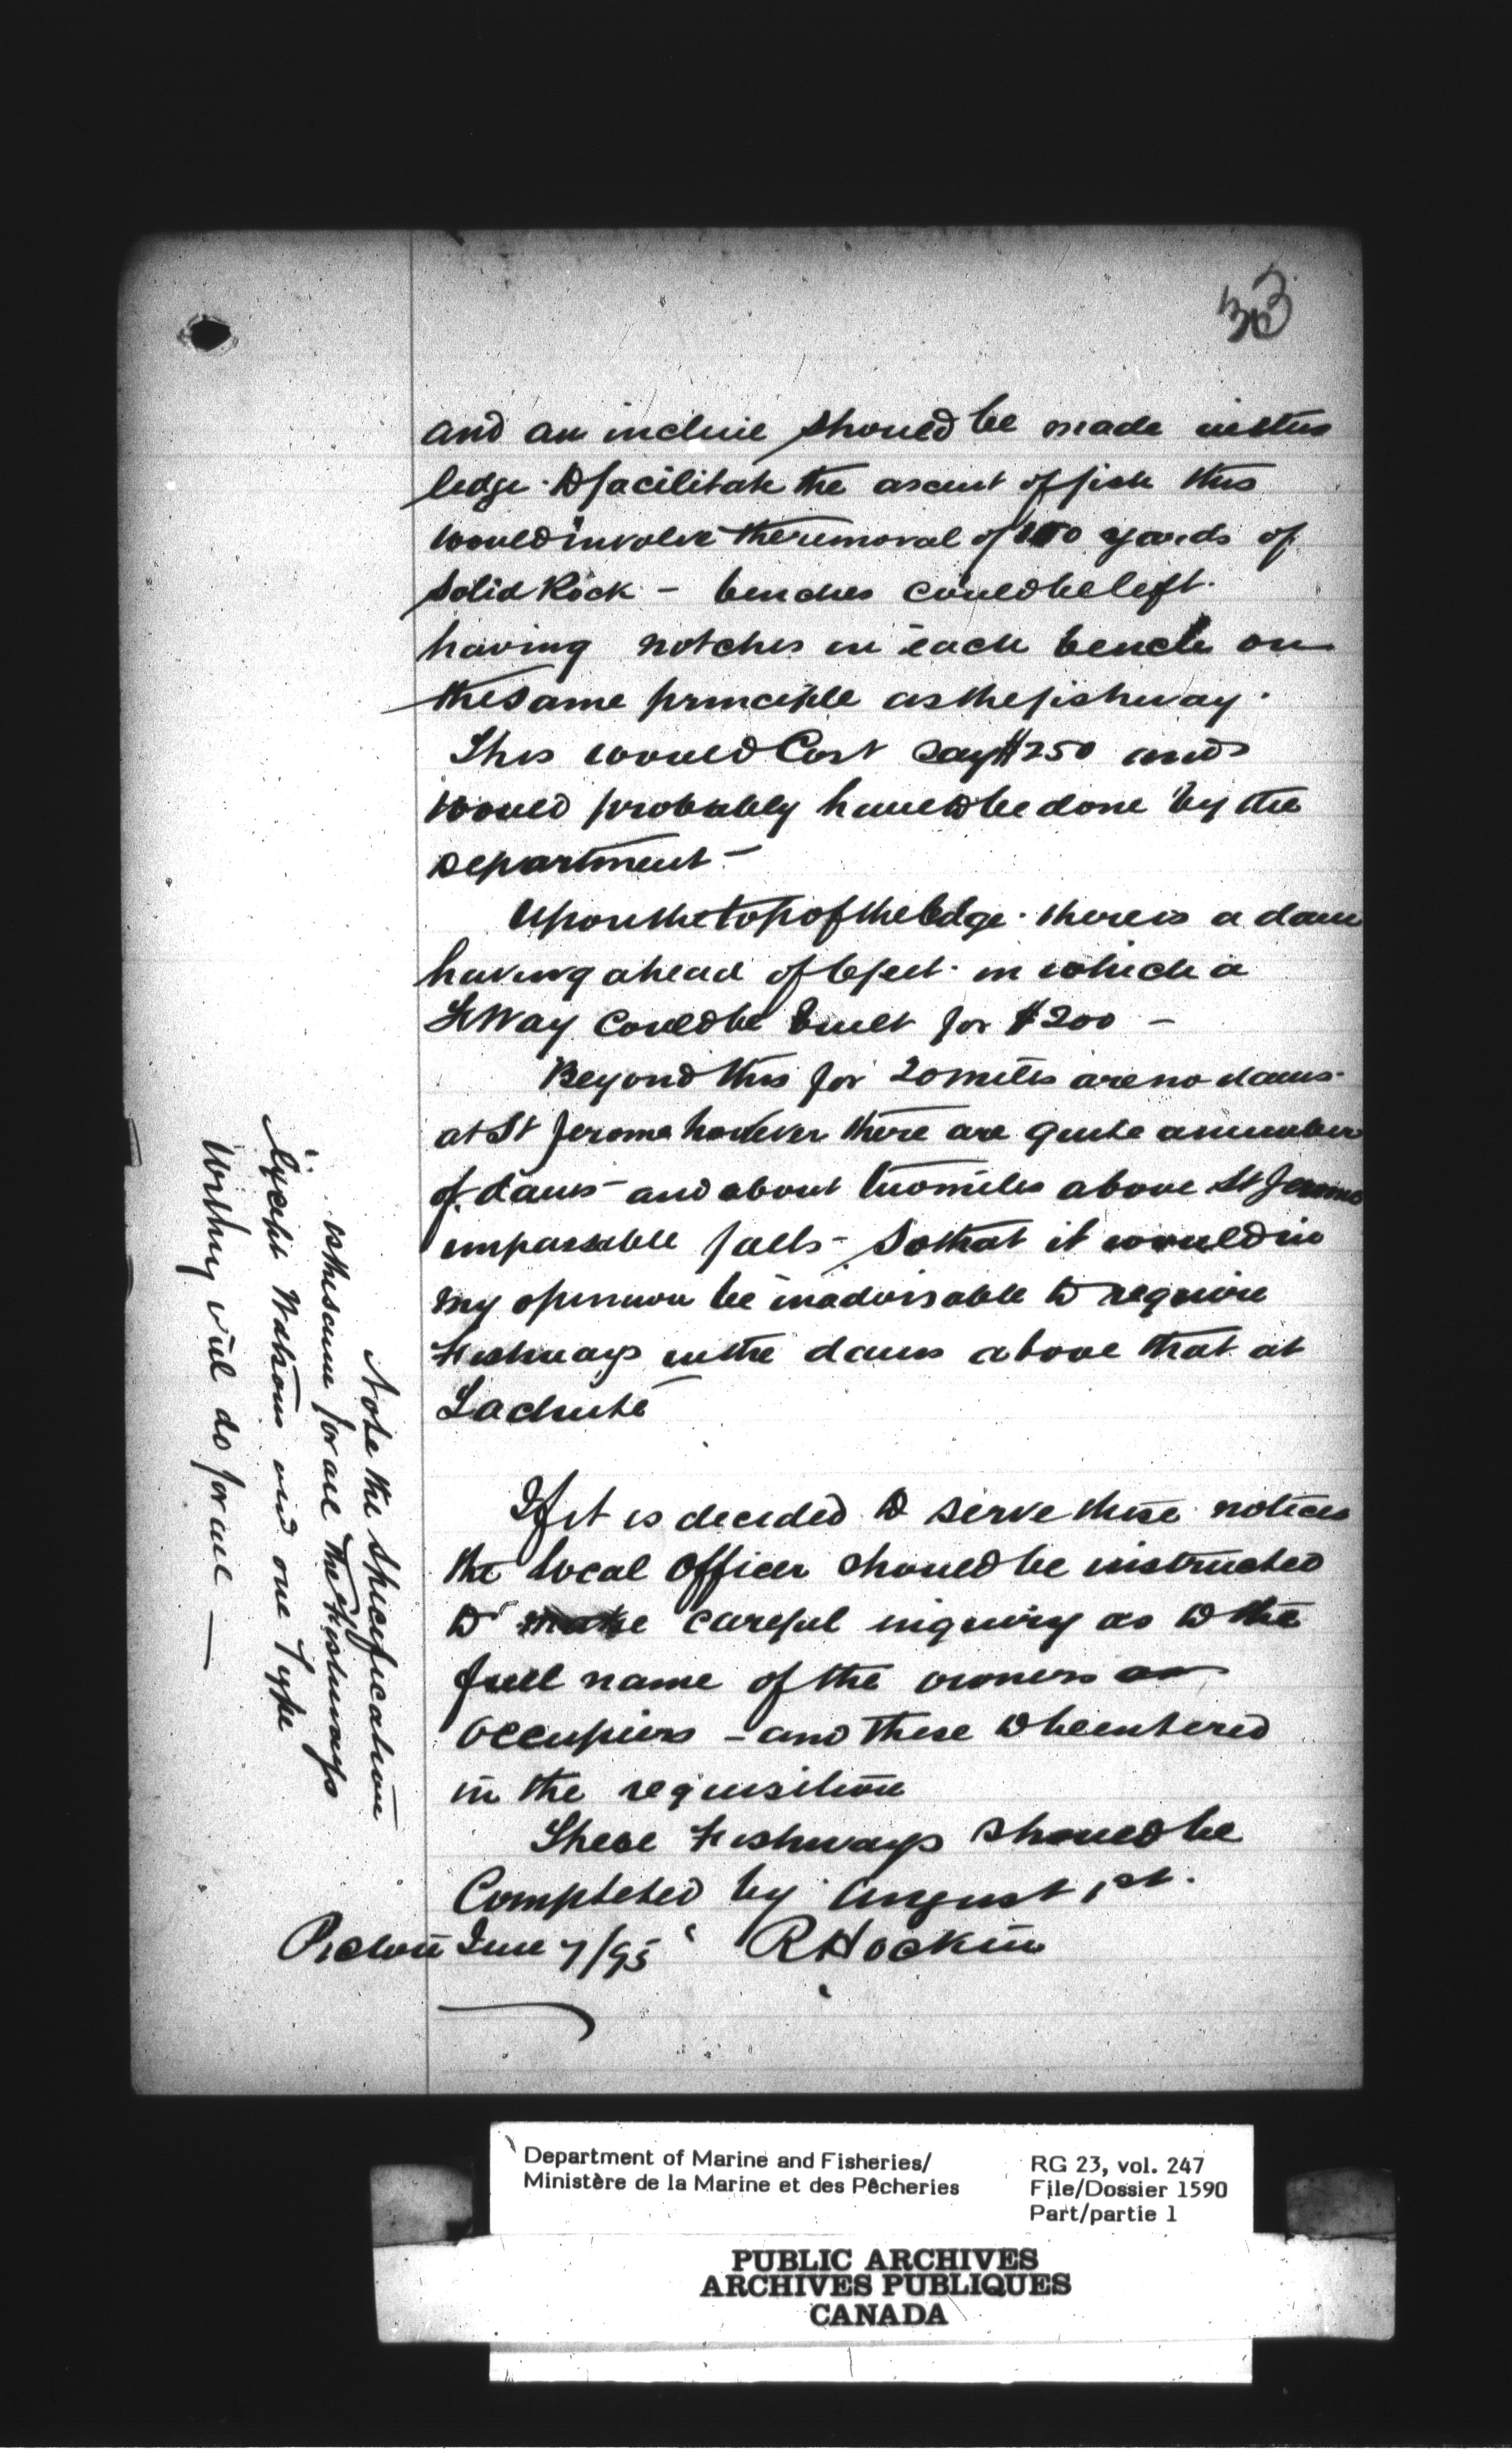 33
and an incline should be made in this
ledge to facilitate the ascent of fish this
would involve the removal of 100 yards of
solid Rock - benches could be left
having notches in each bench on
the same principle as the fishway.
This would Cost say $250 and
would probably have to be done by the
Department -
Upon the top of the ledge there is a dam
having a head of 6 feet in which a
FWay could be built for $200 -
Beyond this for 20 miles are no dams
at St Jerome however there are quite a number
of dams - and about two miles above St Jerome
impassable falls - So that it would in
my opinion be inadvisable to require
Fishways in the dams above that at
Lachute
If it is decided to serve these notices
the local Officer should be instructed
to make careful inquiry as to the
full name of the owners or
occupiers - and these to be entered
in the requisition
These Fishways should be
Completed by August 1st.
Pictou June 7/95 RHockin
Note the specification
is the same for all the fishways
except Watsons and one Type
Writing will do for all —
Department of Marine and Fisheries/
Ministère de la Marine et des Pêcheries
RG 23, vol. 247
File/Dossier 1590
Part/partie 1
PUBLIC ARCHIVES
ARCHIVES PUBLIQUES
CANADA